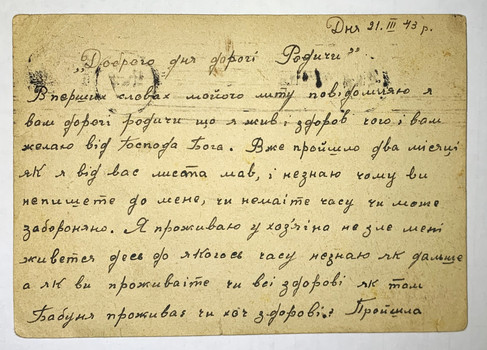 Дня 21. III 43 р.
„Доброго дня дорогі Родичи"
В перших словах мойого листу повідомляю я
вам дорогі родичи що я жив і здоров чого і вам
желаю від Господа Бога. Вже пройшло два місяці
як я від вас листа мав, і незнаю чому ви
непишете до мене, чи немаїте часу чи може
забороняно. Я проживаю у хозʼяїно не зле мені
живется десь до якогось часу незнаю як дальше
а як ви проживаїте чи всі здорові як там
Бабуня проживає чи хоч здорові? Пройшла